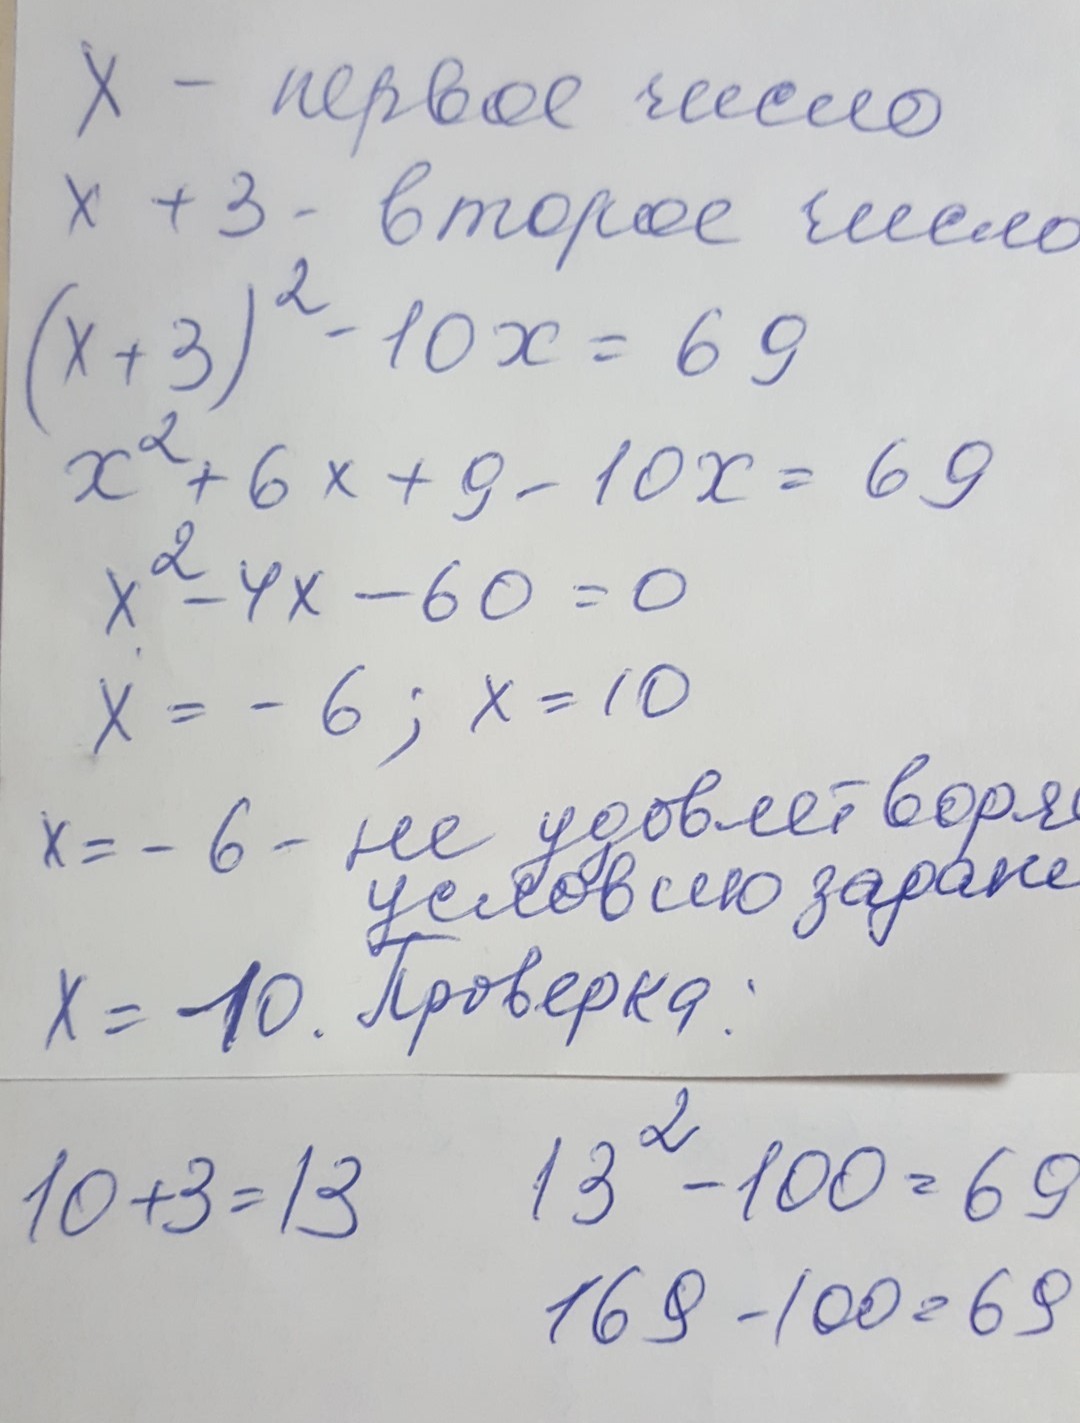 X - первое число
x + 3 - второе число
(x+3)² - 10x = 69
x² + 6x + 9 - 10x = 69
x² - 4x - 60 = 0
x = - 6 ; x = 10
x = - 6 - не удовлетворяе
условию
x = -10. Проверка:
10+3=13 13² - 100 = 69
169 - 100 = 69